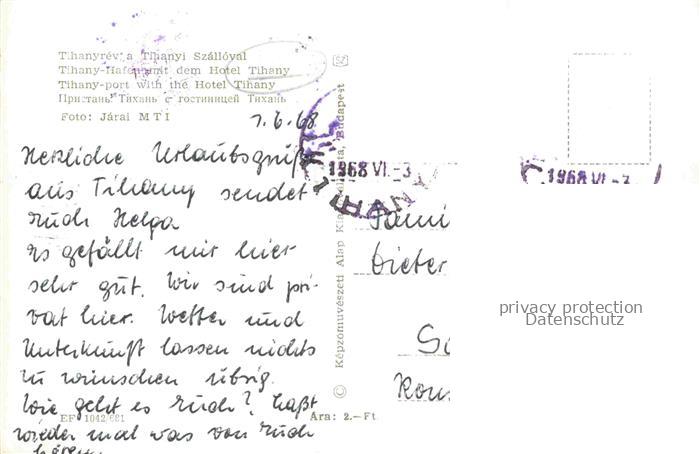 Tihanyrév a Tihanyi Szállóval
Tihany-Hafen mit dem Hotel Tihany
Tihany-port with the Hotel Tihany
Пристань Тихань с гостиницей Тихань
Foto: Járai MTI
1.6.68
Herzliche Urlaubsgrüße
aus Tihany sendet
Euch Helga
Es gefällt mir hier
sehr gut. Wir sind pri-
vat hier. Wetter und
Unterkunft lassen nichts
zu wünschen übrig.
Wie geht es Euch? Laßt
wieder mal was von Euch
hören
EF 1042/681
Ara: 2.-Ft
© Képzőművészeti Alap Kiadóvállalata, Budapest
1968 VI.-3
TIHANY
1968 VI-3
Fami
Dieter
privacy protection
Datenschutz